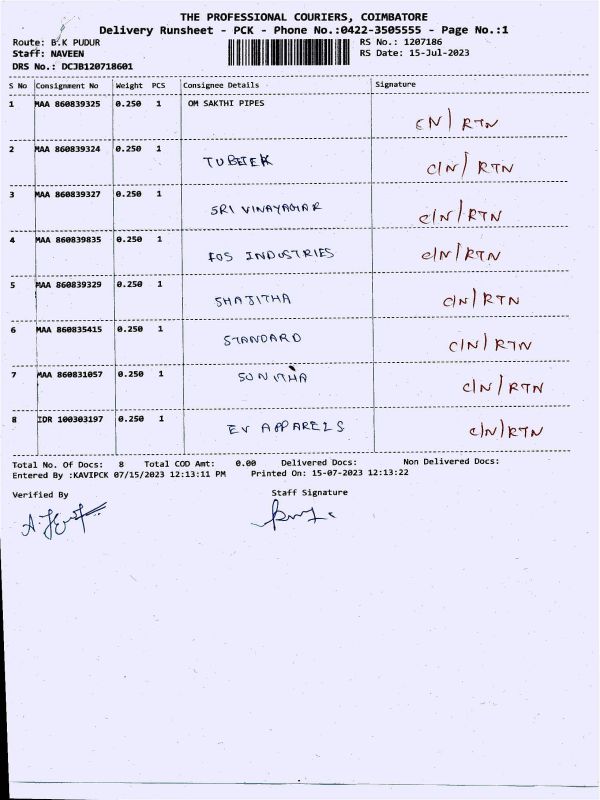 THE PROFESSIONAL COURIERS, COIMBATORE
Delivery Runsheet - PCK - Phone No.:0422-3505555 - Page No.:1
Route: B.K PUDUR RS No.: 1207186
Staff: NAVEEN RS Date: 15-Jul-2023
DRS No.: DCJB120718601
S No Consignment No Weight PCS Consignee Details Signature
1 MAA 860839325 0.250 1 OM SAKTHI PIPES C/N/RTN
2 MAA 860839324 0.250 1 C/N/RTN
3 MAA 860839327 0.250 1 SRI VINAYAGAR C/N/RTN
4 MAA 860839835 0.250 1 FOS INDUSTRIES C/N/RTN
5 MAA 860839329 0.250 1 SHAJITHA C/N/RTN
6 MAA 860835415 0.250 1 STANDARD C/N/RTN
7 MAA 860831057 0.250 1 SUNITHA C/N/RTN
8 IDR 100303197 0.250 1 EV APPARELS C/N/RTN
Total No. Of Docs: 8 Total COD Amt: 0.00 Delivered Docs: Non Delivered Docs:
Entered By :KAVIPCK 07/15/2023 12:13:11 PM Printed On: 15-07-2023 12:13:22
Verified By Staff Signature